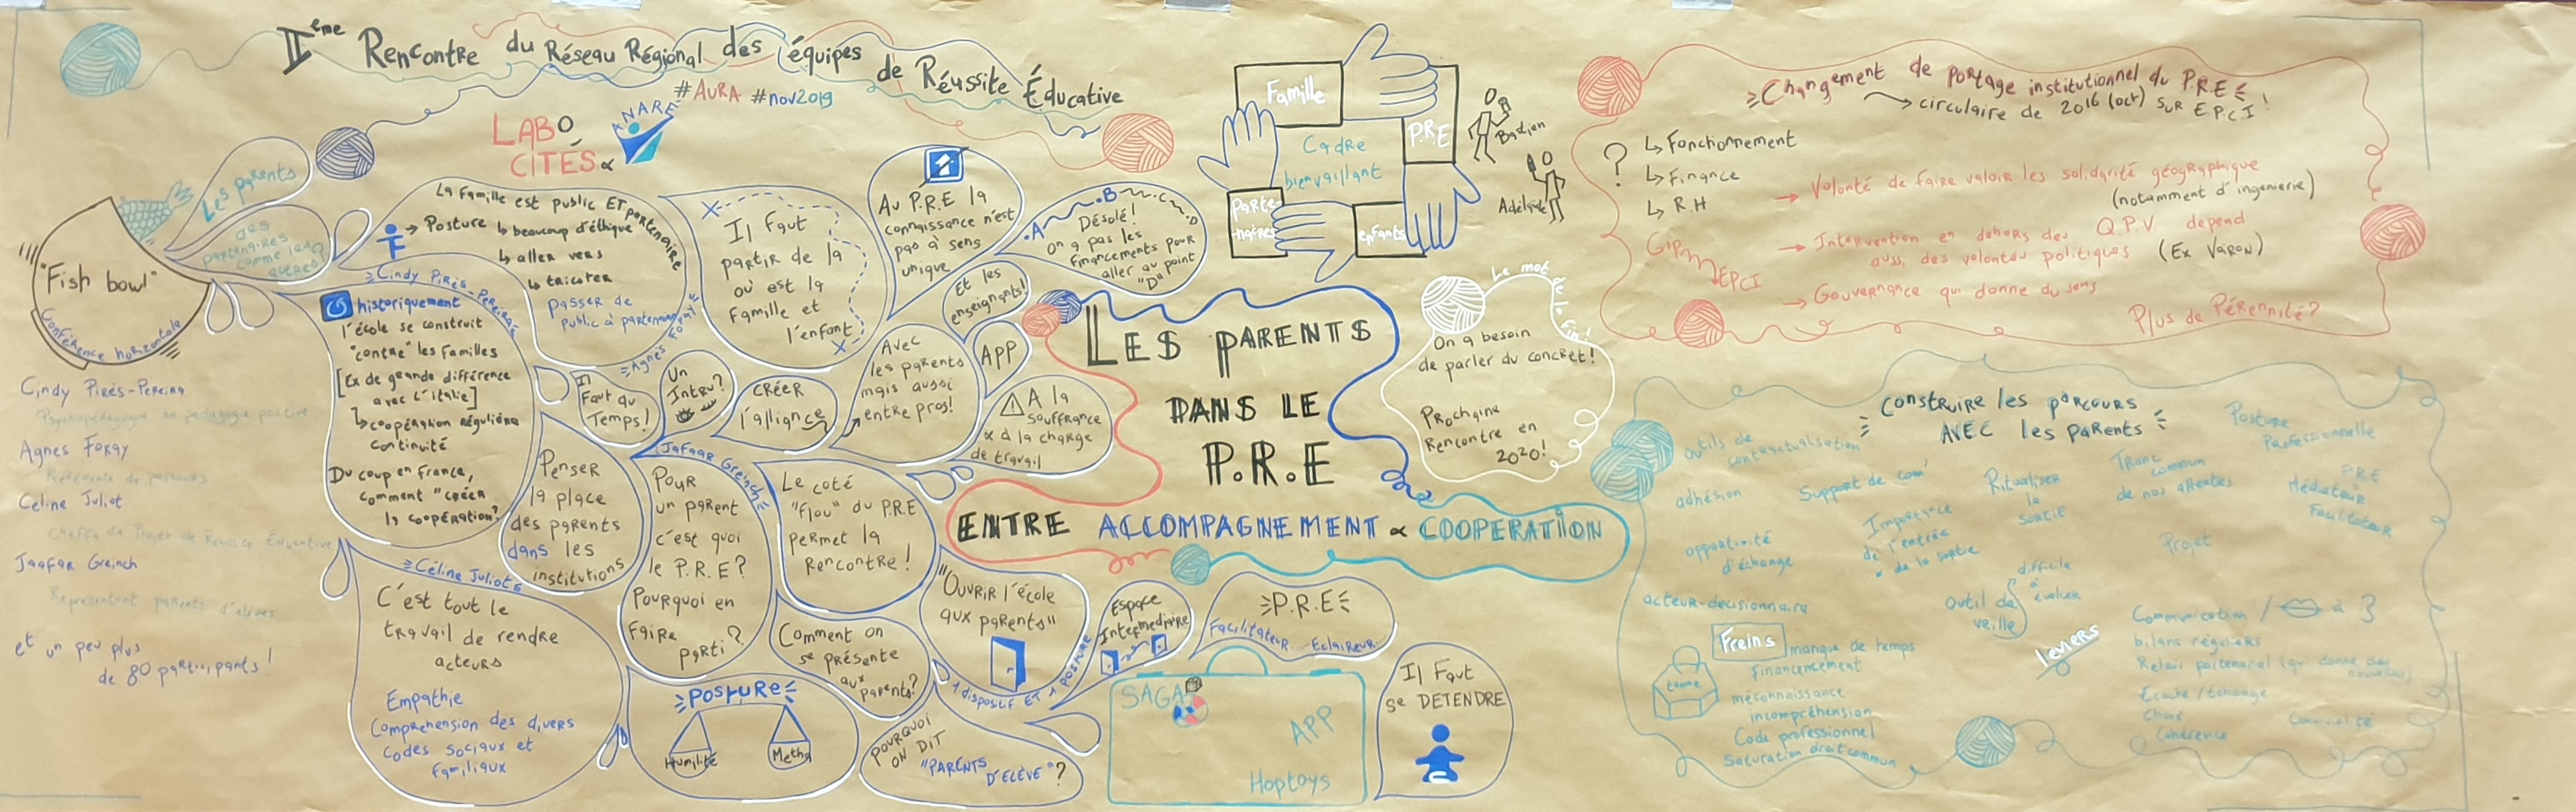 IIeme Rencontre du Réseau Régional des équipes de Réussite Éducative
#AURA #nov2019
LABO
CITÉS &
ANARE
"Fish bowl"
Conférence horizontale
Les parents
des
partenaires
comme les
autres?
Cindy Pirès-Pereira
Psychopédagogue en pédagogie positive
Agnes Foray
Référente de parcours
Celine Juliot
Cheffe de Projet de Réussite Éducative
Jaafar Greinch
Représentant parents d'élèves
et un peu plus
de 80 participants!
La famille est public ET partenaire
→ Posture ↳ beaucoup d'éthique
↳ aller vers
↳ tricoter
passer de
public à partenaire
Agnès Foray
Cindy Pirès-Pereira
historiquement
l'école se construit
"contre" les familles
[Ex de grande différence
avec l'Italie]
↳ coopération régulière
continuité
Du coup en France,
comment "créer
la coopération?
Il faut
partir de là
où est la
famille et
l'enfant
Au P.R.E la
connaissance n'est
pas à sens
unique
.A .B .C .D
Désolé!
on a pas les
financements pour
aller au point
"D"
Et les
enseignants!
Il
faut du
Temps!
Un
Intru?
CRÉER
l'alliance
Avec
les parents
mais aussi
entre pros!
APP
A la
souffrance
& à la charge
de travail
Penser
la place
des parents
dans les
institutions
Jafaar Greinch
Pour
un parent
c'est quoi
le P.R.E?
Pourquoi en
faire
parti?
Le coté
"flou" du P.R.E
permet la
Rencontre!
Céline Juliot
C'est tout le
travail de rendre
acteurs
Empathie
Comprehension des divers
codes sociaux et
familiaux
Posture
Humilité
Métho
Comment on
se présente
aux
parents?
"Ouvrir l'école
aux parents"
1 dispositif ET 1 posture
Espace
Intermediaire
P.R.E
Facilitateur Eclaireur
Pourquoi
on dit
"PARENTS
D'ELÈVE"?
SAGA
APP
Hoptoys
Il faut
se DETENDRE
Famille
P.R.E
Parte-
naires
enfants
Cadre
bienvaillant
Bastien
Adélaïde
LES PARENTS
DANS LE
P.R.E
ENTRE ACCOMPAGNEMENT & COOPERATION
Le mot de la fin!
On a besoin
de parler du concret!
Prochaine
Rencontre en
2020!
Changement de portage institutionnel du P.R.E
→ circulaire de 2016 (oct) sur E.P.C.I!
? ↳ Fonctionnement
↳ Finance
↳ R.H
GIP → EPCI
→ Volonté de faire valoir les solidarité géographique
(notamment d'ingenierie)
→ Intervention en dehors des Q.P.V depend
aussi des volontés politiques (Ex Varon)
→ Gouvernance qui donne du sens
Plus de Pérennité?
Construire les parcours
AVEC les parents
outils de
contractualisation
Posture
Professionnelle
adhésion
Support de com'
Ritualiser
la
sortie
Tronc
commun
de nos attentes
P.R.E
Médiateur
Facilitateur
opportunité
d'échange
Importance
de l'entrée
& de la sortie
Projet
acteur-decisionnaire
Outil de
veille
difficile
à
évaluer
Freins
manque de temps
financement
méconnaissance
incompréhension
Code professionnel
Saturation droit commun
leviers
Communication / à 3
bilans réguliers
Relais partenarial (qui donne des
nouvelles)
Ecoute / Echange
Choix
Cohérence
Convivialité